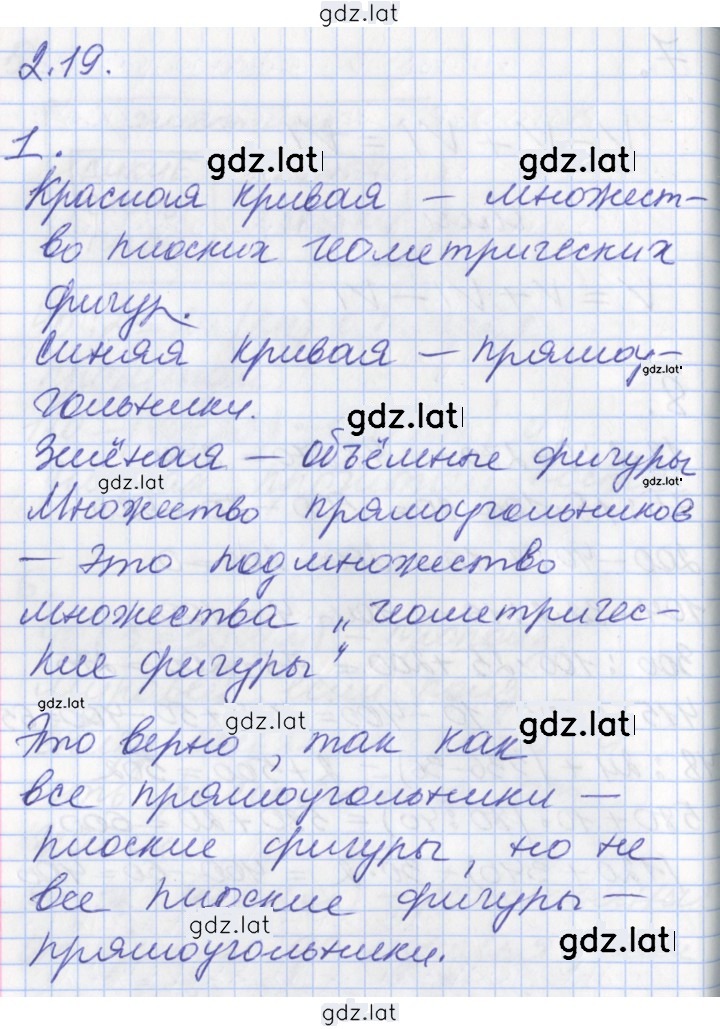 gdz.lat
2.19.
1.
gdz.lat gdz.lat
Красная кривая – множест-
во плоских геометрических
фигур.
Синяя кривая – прямоу-
gdz.lat
гольники.
gdz.lat
Зелёная – объёмные фигуры
gdz.lat gdz.lat
Множество прямоугольников
– это подмножество
множества „геометричес-
кие фигуры"
gdz.lat gdz.lat gdz.lat
Это верно, так как
все прямоугольники –
плоские фигуры, но не
все плоские фигуры –
gdz.lat gdz.lat
прямоугольники.
gdz.lat